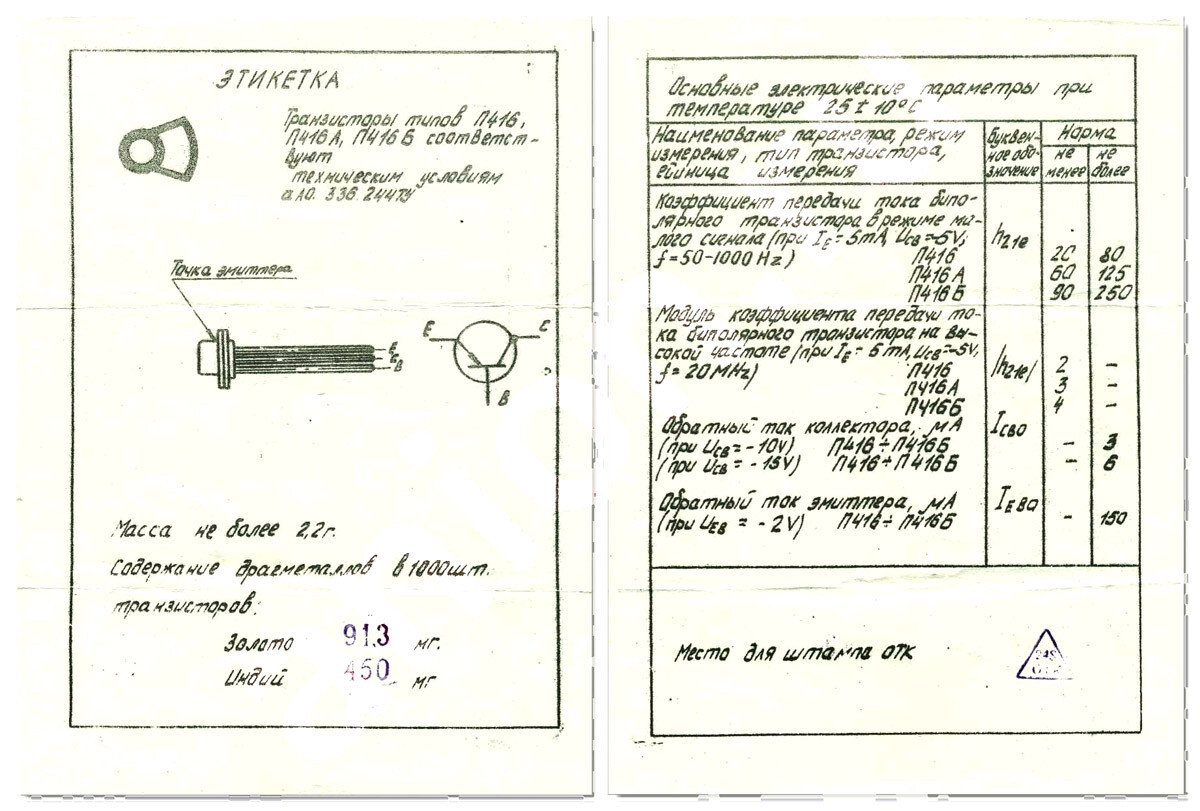 ЭТИКЕТКА
Транзисторы типов П416,
П416А, П416Б соответст-
вуют
техническим условиям
Точка эмиттера
E C
E
B
B
Масса не более 2,2г.
Содержание драгметаллов в 1000шт.
транзисторов:
Золото 91.3 мг.
Индий 450 мг
Основные электрические параметры при
температуре 25 ± 10°С
Наименование параметра, режим
измерения, тип транзистора,
ейиница измерения
Буквен-
ное обо-
значение
Норма
не
менее
не
более
Коэффициент передачи тока бипо-
лярного транзистора в режиме ма-
лого сигнала (при IE = 5mA, UCB = -5V;
f = 50-1000 Hz) h21e
П416 20 80
П416А 60 125
П416Б 90 250
Модуль коэффициента передачи то-
ка биполярного транзистора на вы-
сокой частоте (при IE = 5 mA, UCB = -5V,
f = 20 MHz) |h21e|
П416 2 -
П416А 3 -
П416Б 4 -
Обратный ток коллектора, мА ICBO
(при UCB = - 10V) П416 ÷ П416Б - 3
(при UCB = - 15V) П416 ÷ П416Б - 6
Обратный ток эмиттера, мА IEBO
(при UEB = - 2V) П416 ÷ П416Б - 150
Место для штампа ОТК